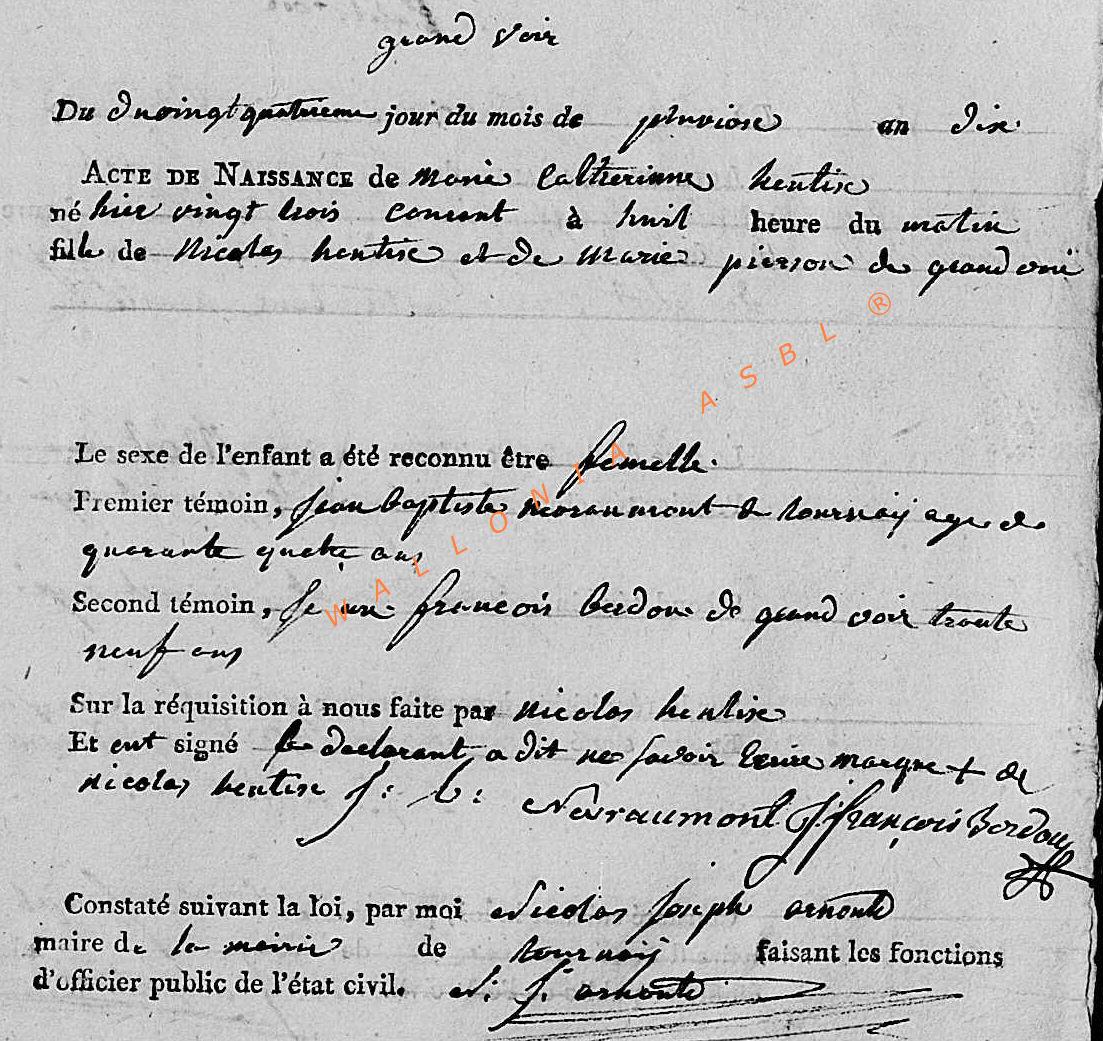 grand voir
Du du vingt quatrieme jour du mois de pluviose an dix
ACTE DE NAISSANCE de marie Catherinne hentise
né hier vingt trois courant à huit heure du matin
fille de Nicolas hentise et de marie pierson de grand voir
Le sexe de l'enfant a été reconnu être femelle.
Premier témoin, jean baptiste nevraumont de tournay age de
quarante quatre ans
Second témoin, Jean françois bordou de grand voir trente
neuf ans
Sur la réquisition à nous faite par nicolas hentise
Et ont signé le declarant a dit ne savoir Ecrire marque + de
nicolas hentise J: b: Nevraumont J françois Bordou
Constaté suivant la loi, par moi Nicolas Joseph arnould
maire de la mairie de tournay faisant les fonctions
d'officier public de l'état civil. N: J. arnould
WALLONIA ASBL ®